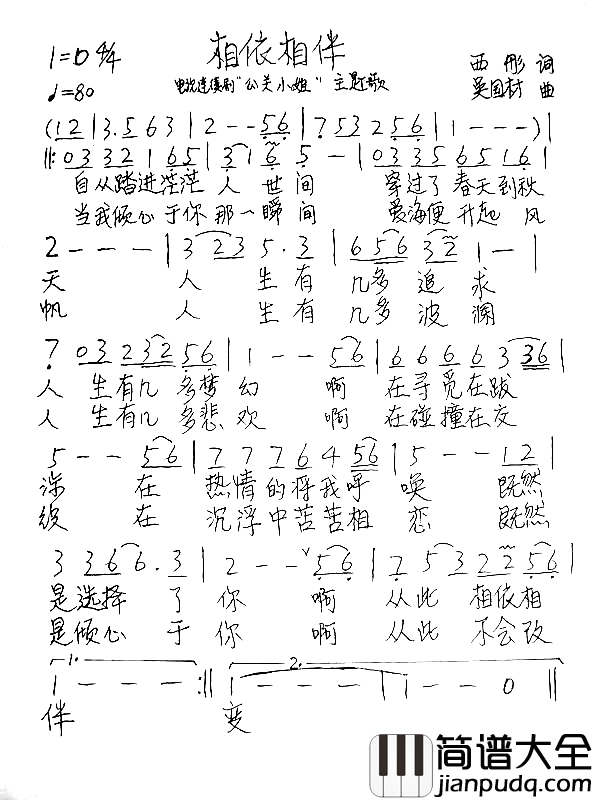 相依相伴
1=D 4/4
♩=80
电视连续剧"公关小姐"主题歌
西彤 词
吴国材 曲
(12|3.563|2--56|7532256|1---)|
‖:03332165|3165-|033565116|
自从踏进茫茫人世间 穿过了春天到秋
当我倾心于你那一瞬间 爱海便升起风
2---|3235.3|656321-|
天 人生有几多追求
帆 人生有几多波澜
70323256|1--56|6666336|
人生有几多梦幻 啊 在寻觅在跋
人生有几多悲欢 啊 在碰撞在交
5--56|7776456|5--12|
涉 在热情的将我呼唤 既然
织 在沉浮中苦苦相恋 既然
3366.3|2--ᵛ56|7532256|
是选择了你 啊 从此 相依相
是倾心于你 啊 从此 不会改
1. 2.
1---:‖1---|1--0‖
伴 变
简谱大全
jianpudq.com